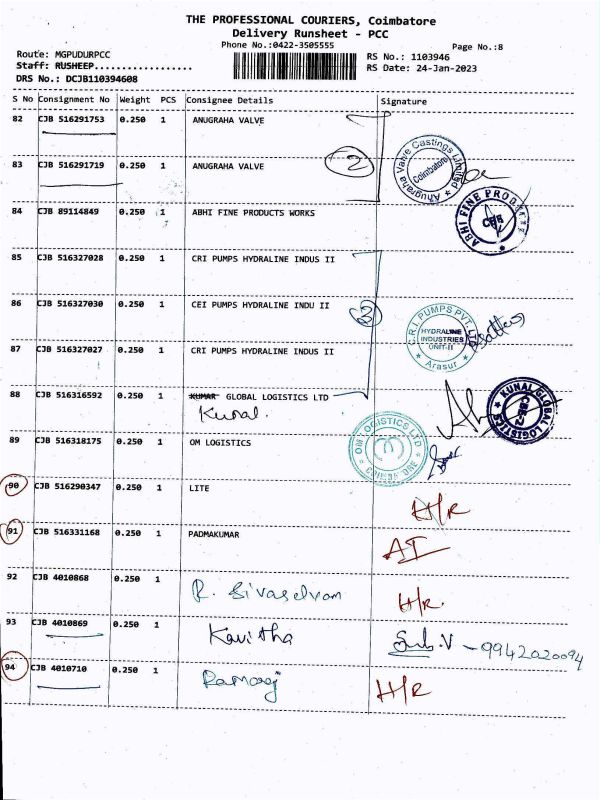 THE PROFESSIONAL COURIERS, Coimbatore
Delivery Runsheet - PCC
Phone No.:0422-3505555 Page No.:8
Route: MGPUDURPCC RS No.: 1103946
Staff: RUSHEEP................. RS Date: 24-Jan-2023
DRS No.: DCJB110394608
S No Consignment No Weight PCS Consignee Details Signature
82 CJB 516291753 0.250 1 ANUGRAHA VALVE
83 CJB 516291719 0.250 1 ANUGRAHA VALVE 2
Anugraha Valve Castings Limited Coimbatore
84 CJB 89114849 0.250 1 ABHI FINE PRODUCTS WORKS
ABHI FINE
85 CJB 516327028 0.250 1 CRI PUMPS HYDRALINE INDUS II
86 CJB 516327030 0.250 1 CEI PUMPS HYDRALINE INDU II 3
C.R.I. PUMPS PVT. LTD
HYDRALINE
INDUSTRIES
UNIT-II
Arasur
87 CJB 516327027 0.250 1 CRI PUMPS HYDRALINE INDUS II
88 CJB 516316592 0.250 1 KUMAR GLOBAL LOGISTICS LTD
Kunal.
KUNAL GLOBAL LOGISTICS CBE-2
89 CJB 516318175 0.250 1 OM LOGISTICS
OM LOGISTICS LTD COIMBATORE
90 CJB 516290347 0.250 1 LITE H/R
91 CJB 516331168 0.250 1 PADMAKUMAR AI
92 CJB 4010868 0.250 1 R. Sivaselvam H/R.
93 CJB 4010869 0.250 1 Kavitha Sub.V - 9942020094
94 CJB 4010710 0.250 1 Ramaraj H/R